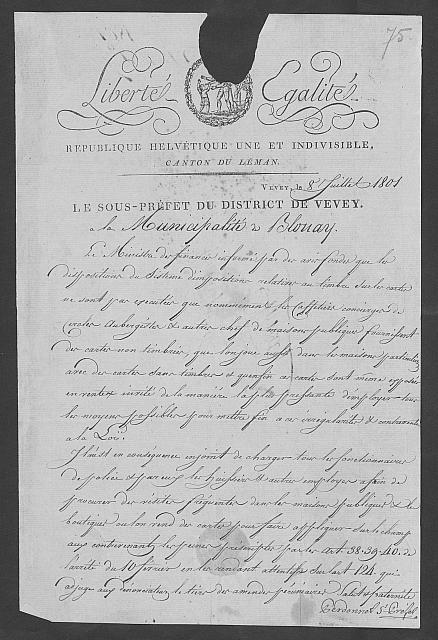 75
Liberté Egalité
REPUBLIQUE HELVÉTIQUE UNE ET INDIVISIBLE,
CANTON DU LÉMAN.
VEVEY, le 8e Juillet 1801
LE SOUS-PRÉFET DU DISTRICT DE VEVEY.
a la Municipalité de Blonay.
Le Ministre des finances informé par des avis fondés que les
dispositions du Sisteme d'impositions relatives au timbre sur les cartes
ne sont pas executées que nommément les Caffetiers concierges de
Aubergistes & autres chefs de maisons publiques fournissent
des cartes non timbrées, que l'on joue aussi dans les maisons particulières
avec des cartes sans timbres & qu'enfin ces cartes sont même exposées
en ventes invite de la manière la plus pressante d'employer tous
les moyens possibles pour mettre fin a ces irrégularités & contraventions
a la Loi.
Il m'est en conséquence enjoint de charger tous les fonctionnaires
de police & par eux les huissiers & autres employes afin de
procurer des visites fréquentes dans les maisons publiques & les
boutiques ou l'on vend des cartes pour faire appliquer sur le champ
aux contrevenants les peines prescriptes par les Art 38. 39. 40. de
l'arrêté du 10 février en les rendant attentifs sur l'art 124. qui
adjuge aux dénonciateurs le tiers des amendes pécuniaires Salut & fraternité
Perdonnet S. Préfet